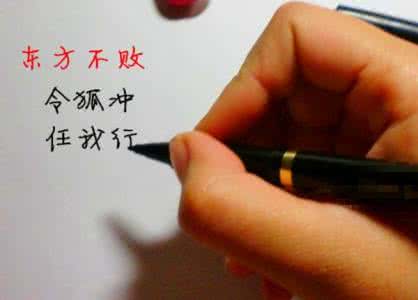 东方不败
令狐冲
任我行